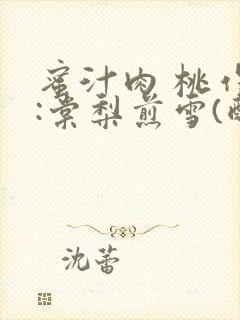 蜜汁肉桃作
:棠梨煎雪(酷
沈蕾